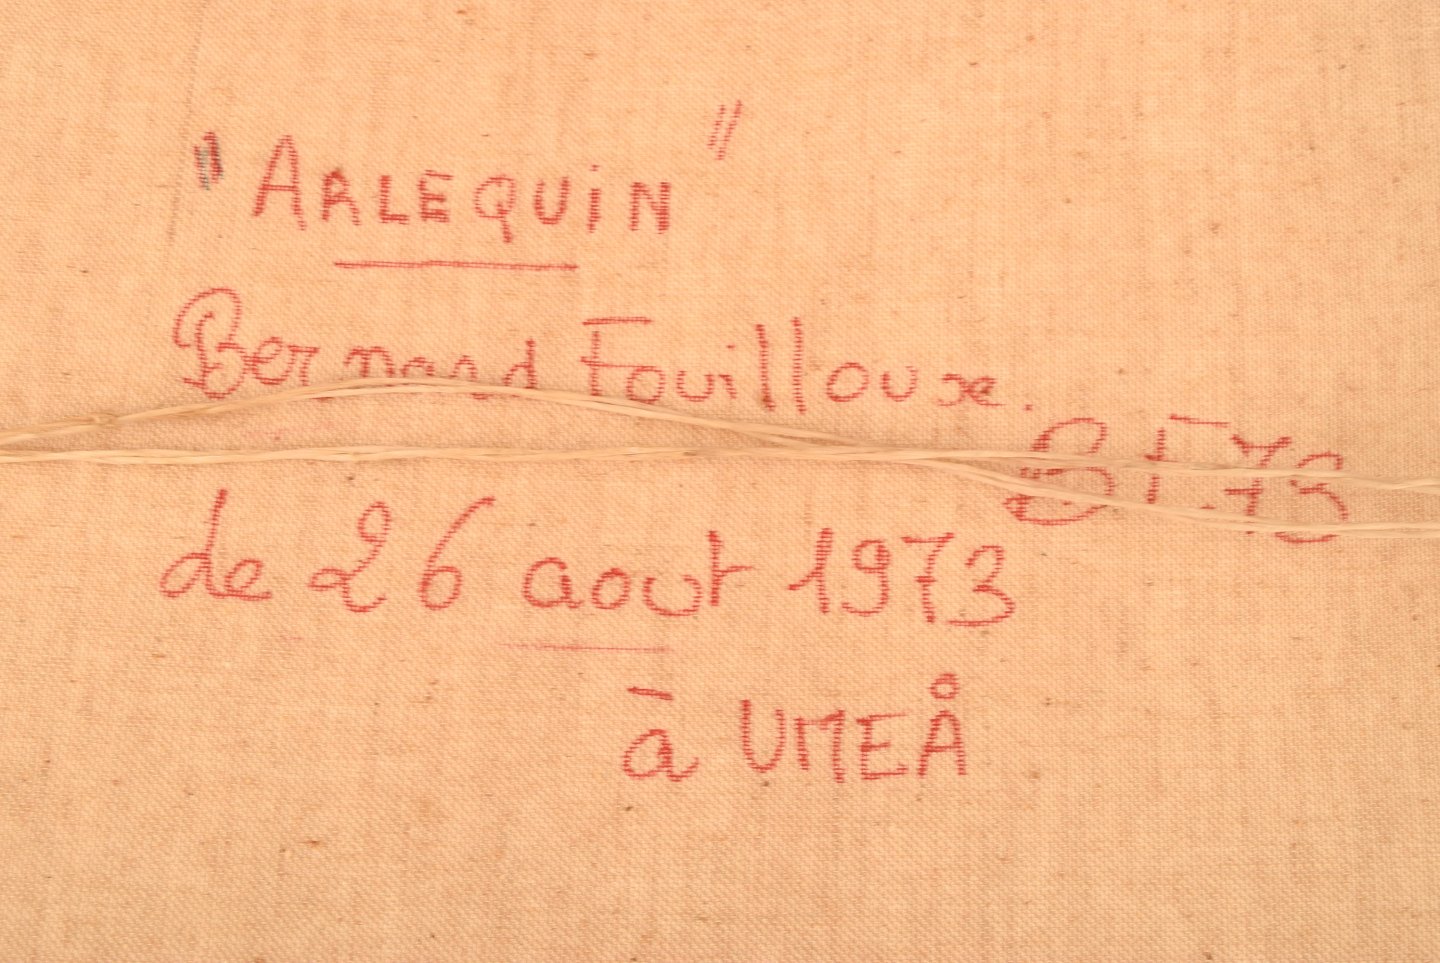 "ARLEQUiN"
Bernard Fouilloux.
BF.73
de 26 aout 1973
à UMEÅ